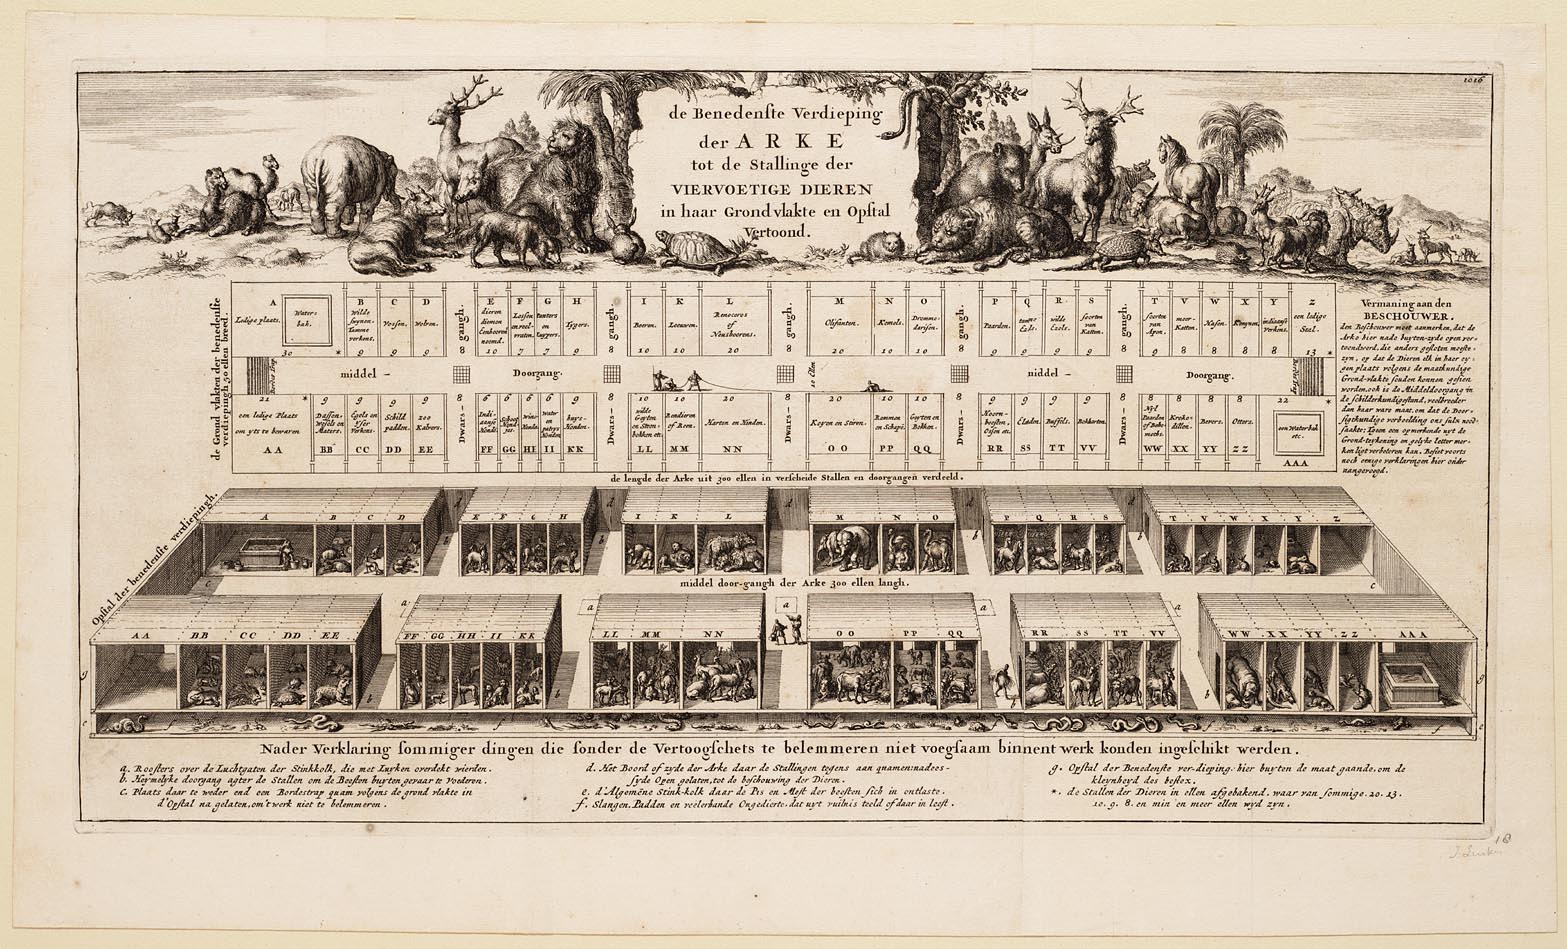 1016
de Benedenste Verdieping
der ARKE
tot de Stallinge der
VIERVOETIGE DIEREN
in haar Grondvlakte en Opstal
Vertoond.
de Grond vlakten der benedenste
verdiepingh 50 ellen breed.
A
Ledige plaats.
Water-
bak.
30 *
B
Wilde
Swynen.
Tamme
verkens.
9
C
Vossen.
9
D
Wolven.
9
gangh.
8
E
dieren
diemen
Eenhooren
noemd.
10
F
Lossen
en veel-
vraten.
7
G
Panters
en
Luypers.
7
H
Tygers.
9
gangh.
8
I
Beeren.
10
K
Leeuwen.
10
L
Renoceros
of
Neushoorens.
20
gangh.
8
M
Olifanten.
20
N
Kemels.
10
O
Drome-
darisen.
10
gangh.
8
P
Paarden.
9
Q
tamme
Ezels.
9
R
wilde
Ezels.
9
S
soorten
van
Katten.
9
gangh.
8
T
soorten
van
Apen.
9
V
meer-
Katten.
8
W
Hasen.
8
X
Konynen.
8
Y
indiaanse
Verkens.
8
Z
een ledige
Stal.
13 *
middel -
Doorgang.
10 Ellen
middel -
Doorgang.
21 *
een ledige Plaats
om yts te bewaren
AA
9
Dassen.
Wesels en
Maters.
BB
9
Egels en
Yser
Verkens.
CC
9
Schild
padden.
DD
9
zee
Kalvers.
EE
8
Dwars-
6
Indi-
aanse
Hondt.
FF
6
Schoot
Hond-
jes.
GG
6
Wind
Honden.
HH
6
Water
en
patrys
Honden
II
9
huys-
Honden.
KK
8
Dwars-
10
wilde
Geyten
en Steen-
bokken etc.
LL
10
Rendieren
of Reen.
MM
20
Harten en Hinden.
NN
8
Dwars-
20
Koyen en Stieren.
OO
10
Rammen
en Schapē.
PP
10
Geyten en
Bokken.
QQ
8
Dwars-
9
Hoorn-
beesten,
Ossen etc.
RR
9
Elanden.
SS
9
Buffels.
TT
9
Bokharten.
VV
8
Dwars-
8
Nyl
Paarden
of Behe-
moths.
WW
8
Kroko-
dillen.
XX
8
Bevers.
YY
8
Otters.
ZZ
22 *
een Waterbak
etc.
AAA
Vermaning aan den
BESCHOUWER.
den Beschouwer moet aanmerken, dat de
Arke hier nade buyten-zyde open ver-
toond word, die anders gesloten moeste
zyn, op dat de Dieren elk in haer ey-
gen plaats volgens de maatkundige
Grond-vlakte souden konnen gesien
worden, ook is de Middeldoorgang in
de schilderkundige stand, veel breeder
dan haar ware maat, om dat de Door-
sigtkundige verbeelding ons sulx nood-
saakte; Soo een opmerkende uyt de
Grond-teykening en gelyke letter mer-
ken ligt verbeteren kan. Besiet voorts
noch eenige verklaringen hier onder
aangevoegd.
de lengde der Arke uit 300 ellen in verscheide Stallen en doorgangen verdeeld.
Opstal der benedenste verdiepingh.
A B C D
E F G H
I K L
M N O
P Q R S
T V W X Y Z
middel door-gangh der Arke 300 ellen langh.
AA BB CC DD EE
FF GG HH II KK
LL MM NN
OO PP QQ
RR SS TT VV
WW XX YY ZZ AAA
Nader Verklaring sommiger dingen die sonder de Vertoogschets te belemmeren niet voegsaam binnent werk konden ingeschikt werden.
a. Roosters over de Luchtgaten der Stinkkolk, die met Luyken overdekt wierden.
b. Heymelyke doorgang agter de Stallen om de Beesten buyten gevaar te Voederen.
c. Plaats daar te weder end een Bordestrap quam volgens de grond vlakte in
d'Opstal na gelaten, om't werk niet te belemmeren.
d. Het Boord of zyde der Arke daar de Stallingen tegens aan quamen, nadees-
syde Open gelaten, tot de beschouwing der Dieren.
e. d'Algemene Stink-kolk daar de Pis en Mest der beesten sich in ontlaste.
f. Slangen, Padden en veelerhande Ongedierte, dat uyt vuilnis teeld of daar in leeft.
g. Opstal der Benedenste ver-dieping hier buyten de maat gaande, om de
kleynheyd des bestex.
*. de Stallen der Dieren in ellen afgebakend, waar van sommige. 20. 13.
10. 9. 8. en min en meer ellen wyd zyn.
J. Luiken